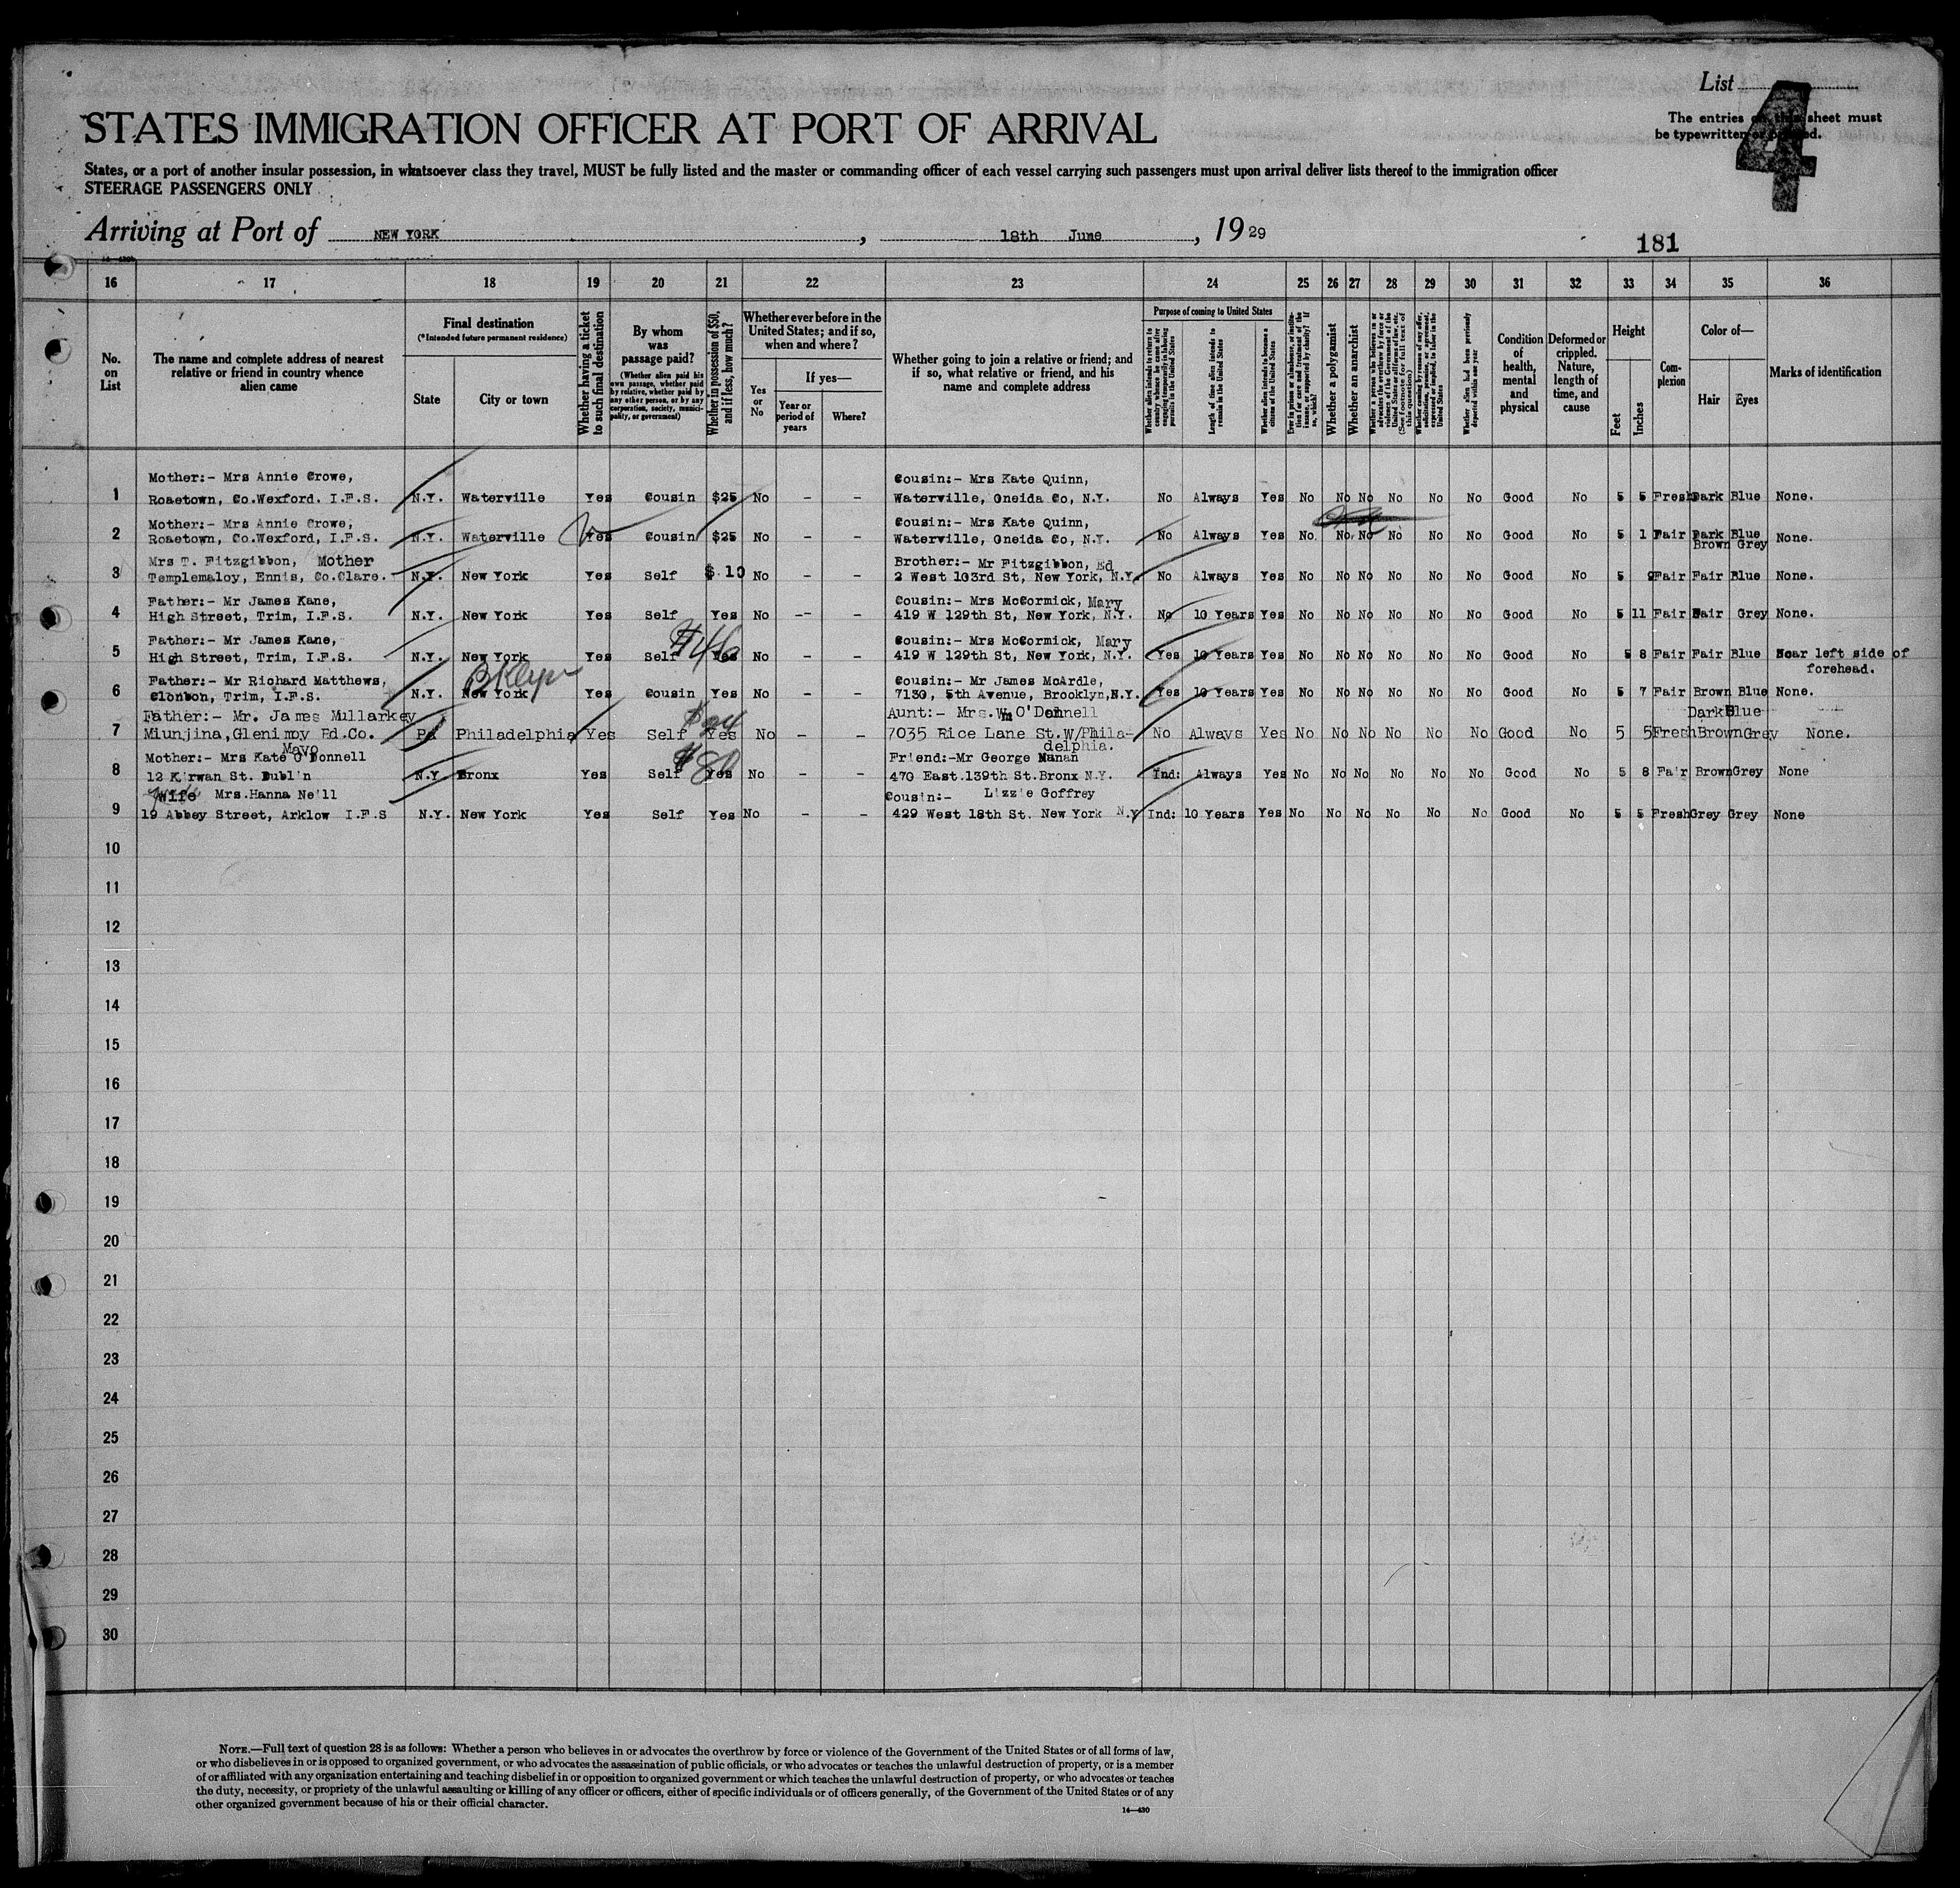 List
4
The entries on this sheet must
be typewritten or printed.
STATES IMMIGRATION OFFICER AT PORT OF ARRIVAL
States, or a port of another insular possession, in whatsoever class they travel, MUST be fully listed and the master or commanding officer of each vessel carrying such passengers must upon arrival deliver lists thereof to the immigration officer
STEERAGE PASSENGERS ONLY
Arriving at Port of NEW YORK, 18th June, 1929
181
16 17 18 19 20 21 22 23 24 25 26 27 28 29 30 31 32 33 34 35 36
No. on List
The name and complete address of nearest relative or friend in country whence alien came
Final destination
(*Intended future permanent residence)
State
City or town
Whether having a ticket to such final destination
By whom was passage paid?
(Whether alien paid his own passage, whether paid by relative, whether paid by any other person, or by any corporation, society, municipality, or government)
Whether in possession of $50, and if less, how much?
Whether ever before in the United States; and if so, when and where?
Yes or No
If yes—
Year or period of years
Where?
Whether going to join a relative or friend; and if so, what relative or friend, and his name and complete address
Purpose of coming to United States
Whether alien intends to return to country whence he came after engaging temporarily in laboring pursuits in the United States
Length of time alien intends to remain in the United States
Whether alien intends to become a citizen of the United States
Ever in prison or almshouse, or institution for care and treatment of the insane, or supported by charity? If so, which?
Whether a polygamist
Whether an anarchist
Whether a person who believes in or advocates the overthrow by force or violence of the Government of the United States or all forms of law, etc. (See footnote for full text of this question)
Whether coming by reason of any offer, solicitation, promise, or agreement, expressed or implied, to labor in the United States
Whether alien had been previously deported within one year
Condition of health, mental and physical
Deformed or crippled. Nature, length of time, and cause
Height
Feet
Inches
Complexion
Color of—
Hair
Eyes
Marks of identification
Mother:- Mrs Annie Crowe, Cousin:- Mrs Kate Quinn,
1 Roaetown, Co.Wexford. I.F.S. N.Y. Waterville Yes Cousin $25 No - - Waterville, Oneida Co, N.Y. No Always Yes No No No No No No Good No 5 5 Fresh Dark Blue None.
Mother:- Mrs Annie Crowe, Cousin:- Mrs Kate Quinn,
2 Roaetown, Co.Wexford, I.F.S. N.Y. Waterville Yes Cousin $25 No - - Waterville, Oneida Co, N.Y. No Always Yes No. No No No No No Good No 5 1 Fair Dark Brown Blue Grey None.
Mrs T. Fitzgibbon, Mother Brother:- Mr Fitzgibbon, Ed
3 Templemaloy, Ennis, Co.Clare. N.Y. New York Yes Self $ 10 No - - 2 West 103rd St, New York, N.Y. No Always Yes No No No No No No Good No 5 9 Fair Fair Blue None.
Father:- Mr James Kane, Cousin:- Mrs McCormick, Mary
4 High Street, Trim, I.F.S. N.Y. New York Yes Self Yes No -- - 419 W 129th St, New York, N.Y. No 10 Years Yes No No No No No No Good No 5 11 Fair Fair Grey None.
Father:- Mr James Kane, Cousin:- Mrs McCormick, Mary
5 High Street, Trim, I.F.S. N.Y. New York Yes Self Yes No - - 419 W 129th St, New York, N.Y. Yes 10 Years Yes No No No No No No Good No 5 8 Fair Fair Blue Scar left side of forehead.
Father:- Mr Richard Matthews, Bklyn Cousin:- Mr James McArdle,
6 Clonbon, Trim, I.F.S. N.Y. New York Yes Cousin Yes No - - 7130, 5th Avenue, Brooklyn, N.Y. Yes 10 Years Yes No No No No No No Good No 5 7 Fair Brown Blue None.
Father:- Mr. James Mullarkey Aunt:- Mrs. Wm O'Donnell Dark Blue
7 Miunjina, Glenimoy Ed.Co. Mayo Pa Philadelphia Yes Self $24 Yes No - - 7035 Rice Lane St.W/Philadelphia. No Always Yes No No No No No No Good No 5 5 Fresh Brown Grey None.
Mother:- Mrs Kate O'Donnell Friend:-Mr George Manan
8 12 Kirwan St. Dublin N.Y. Bronx Yes Self $80 Yes No - - 470 East.139th St.Bronx N.Y. Ind: Always Yes No No No No No No Good No 5 8 Fair Brown Grey None
Wife Mrs.Hanna Neill Cousin:- Lizzie Goffrey
9 19 Abbey Street, Arklow I.F.S N.Y. New York Yes Self Yes No - - 429 West 18th St. New York N.Y Ind: 10 Years Yes No No No No No No Good No 5 5 Fresh Grey Grey None
10
11
12
13
14
15
16
17
18
19
20
21
22
23
24
25
26
27
28
29
30
NOTE.—Full text of question 28 is as follows: Whether a person who believes in or advocates the overthrow by force or violence of the Government of the United States or of all forms of law,
or who disbelieves in or is opposed to organized government, or who advocates the assassination of public officials, or who advocates or teaches the unlawful destruction of property, or is a member
of or affiliated with any organization entertaining and teaching disbelief in or opposition to organized government or which teaches the unlawful destruction of property, or who advocates or teaches
the duty, necessity, or propriety of the unlawful assaulting or killing of any officer or officers, either of specific individuals or of officers generally, of the Government of the United States or of any
other organized government because of his or their official character.
14—430